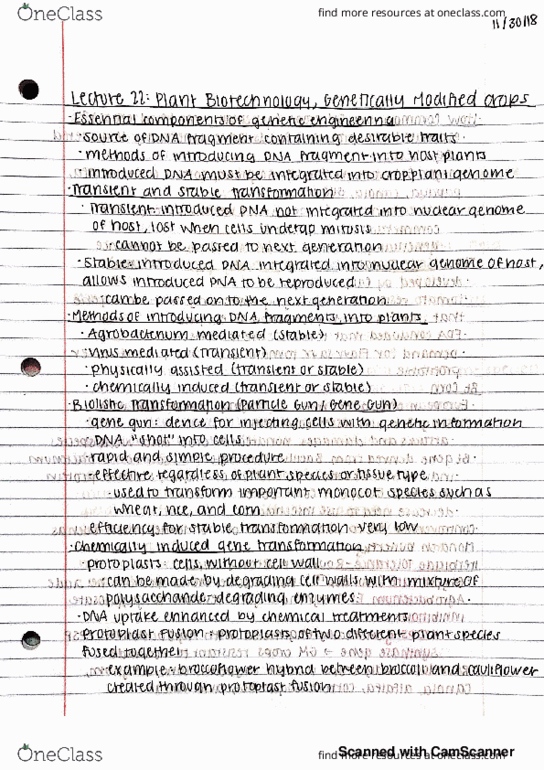 OneClass
find more resources at oneclass.com
11/30/18
Lecture 22: Plant Biotechnology, Genetically Modified Crops
· Essential components of genetic engineering
· source of DNA fragment containing desirable traits
· methods of introducing DNA fragment into host plants
· introduced DNA must be integrated into crop plant genome
· Transient and stable transformation
· Transient: introduced DNA not integrated into nuclear genome
of host, lost when cells undergo mitosis
· cannot be passed to next generation
· Stable: introduced DNA integrated into nuclear genome of host,
allows introduced DNA to be reproduced
· can be passed on to the next generation
· Methods of introducing DNA fragments into plants
· Agrobacterium mediated (stable)
· virus mediated (transient)
· physically assisted (transient or stable)
· chemically induced (transient or stable)
· Biolistic Transformation (Particle Gun/Gene Gun)
· gene gun: device for injecting cells with genetic information
· DNA "shot" into cells
· rapid and simple procedure
· effective regardless of plant species or tissue type
· used to transform important monocot species such as
wheat, rice, and corn
· efficiency for stable transformation very low
· chemically induced gene transformation
· protoplasts: cells without cell wall
· can be made by degrading cell walls with mixture of
polysaccharide-degrading enzymes
· DNA uptake enhanced by chemical treatments
· Protoplast fusion: protoplasts of two different plant species
fused together
· example: broccoflower hybrid between broccoli and cauliflower
created through protoplast fusion
OneClass
find more resources at oneclass.com
Scanned with CamScanner